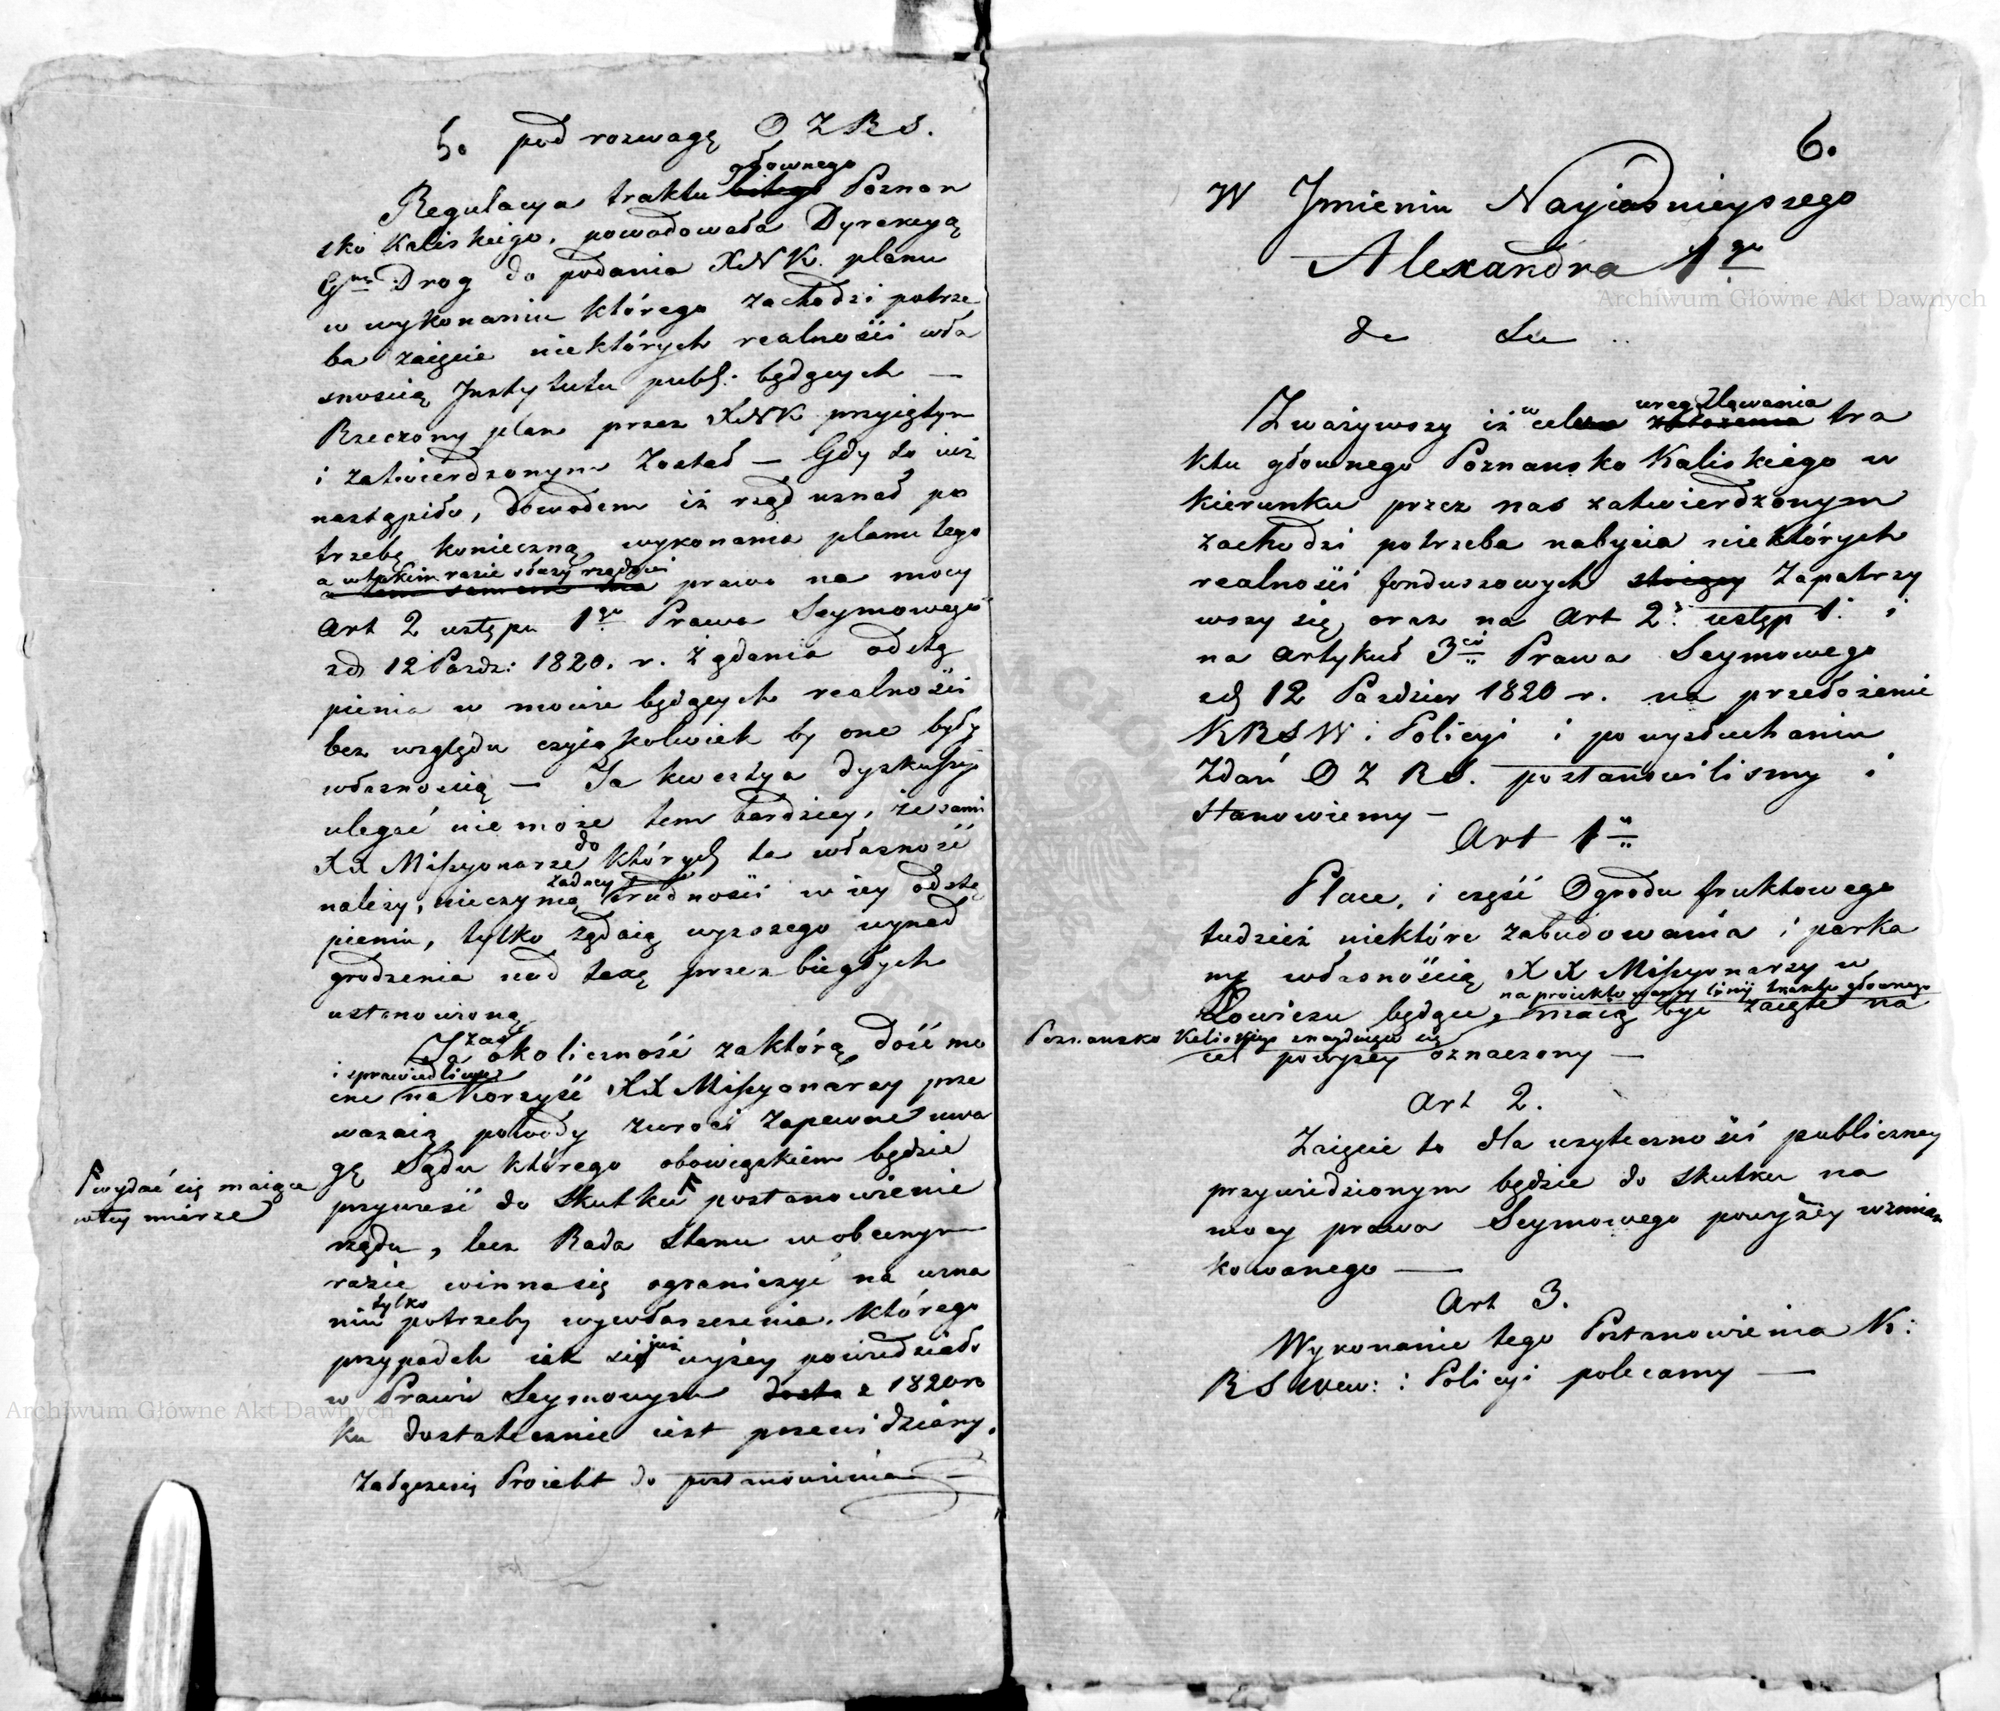 5. pod rozwagę O Z R S.
głownego
Regulacya traktu bitego Poznan
sko Kaliskiego, powodowała Dyrekcyą
Gną Drog do podania XNK. planu
w wykonaniu którego zachodzi potrze
ba zaięcie niektórych realności wła
snością Instytutu publ: będących —
Rzeczony plan przez XNK przyiętym
i zatwierdzonym został — Gdy to iuż
nastąpiło, dowodem iż rząd uznał po
trzebę konieczną wykonania planu tego
a w takim razie służy rządowi
a tem samem ma prawo na mocy
Art 2 ustępu 1go Prawa Seymowego
zd 12 Pazdz: 1820. r. żądania odstą
pienia w mowie będących realności
bez względu czyią kolwiek by one były
własnością — Ta kwestya dyskussyi
ulegać nie może tem bardziey, że sami
XX Missyonarze do których ta własność
należy, nieczynią żadney trudności w iey odstą
pieniu, tylko żądaią wyższego wynad
grodzenia nad taxę przez biegłych
ustanowioną
Ta zaś okoliczność zaktórą dość mo
i sprawiedliwe
cne na korzyść XX Missyonarzy prze
waźaią powody zwróci zapewne uwa
gę Sądu którego obowiązkiem będzie
przywieść do skutku postanowienie
wydać się maiące
w tey mierze
rządu, lecz Rada Stanu w obecnym
razie winna się ograniczyć na uzna
niu tylko potrzeby wywłaszczenia, którego
przypadek iak się iuż wyżey powiedziało
w Prawie Seymowym z 1820 ro
ku dostatecznie iest przewidziany.
Załączony Proiekt do postanowienia —
6.
W Jmieniu Nayiaśnieyszego
Alexandra 1go
&c &c
Zważywszy iż w celu uregulowania założenia tra
ktu głównego Poznansko Kaliskiego w
kierunku przez nas zatwierdzonym
zachodzi potrzeba nabycia niektórych
realności funduszowych Zapatrzy
wszy się oraz na Art 2. ustęp 1. i
na artykuł 3ci Prawa Seymowego
zd 12 Pazdzier 1820 r. na przełożenie
KRSW i Policyi i po wysłuchaniu
Zdań O Z RS. postanowilismy i
stanowiemy —
Art 1
Place, i część Ogrodu fruktowego
tudzież niektóre zabudowania i parka
ny własnością XX Missyonarzy w
na proiektowaney linij traktu głownego
Łowiczu będące, maią być zaięte na
Poznansko Kaliskiego znayduiące się
cel powyżey oznaczony —
Art 2.
Zaięcie to dla użyteczności publiczney
przywiedzionym będzie do skutku na
mocy prawa Seymowego powyżey wzmian
kowanego —
Art 3.
Wykonanie tego Postanowienia K:
RS Wew: i Policyi polecamy —
Archiwum Główne Akt Dawnych
Archiwum Główne Akt Dawnych